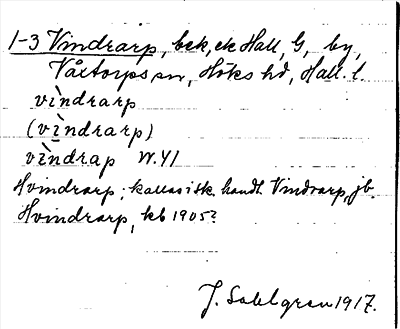 1-3 Vindrarp, bek, ek Hall, G, by,
Våxtorps sn, Höks hd, Hall. l.
vìndrarp
(vìndrarp)
vìndrap W. 41
Hvindrarp; kallas i sk. handl. Vindrarp, jb.
Hvindrarp, kb 1905?
J. Sahlgren 1917.